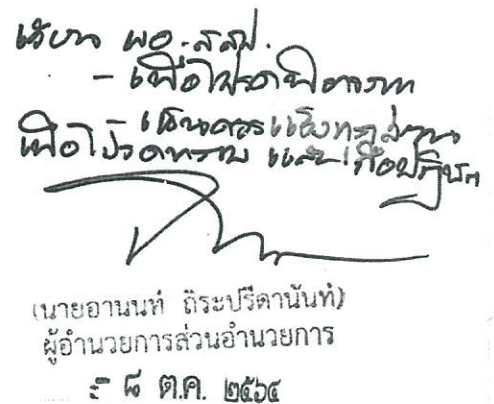 เรียน ผอ.สสป.
- เพื่อโปรดพิจารณา
เห็นควรแจ้งทุกส่วน
เพื่อโปรดทราบ และเพื่อปฏิบัติ
(นายอานนท์ ถิระปรีดานันท์)
ผู้อำนวยการส่วนอำนวยการ
- ๘ ต.ค. ๒๕๖๔